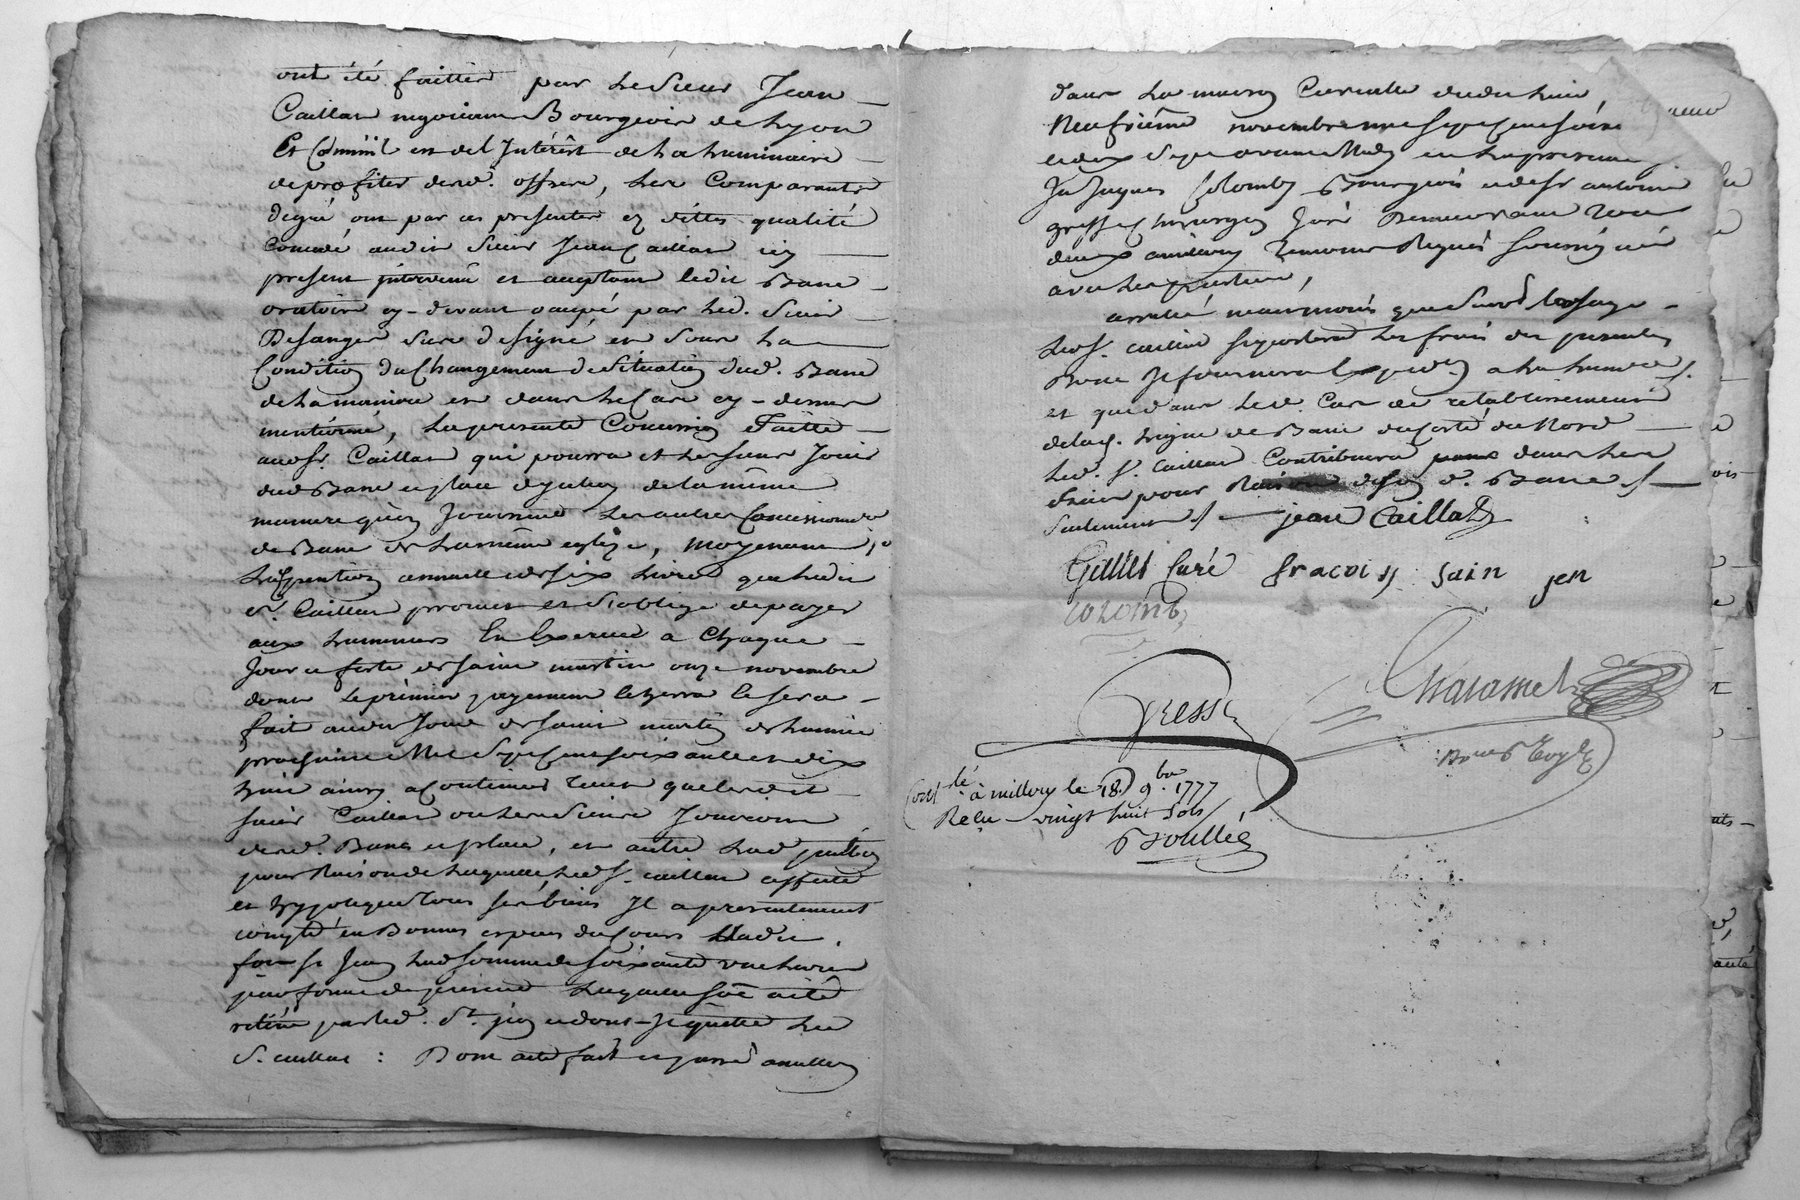 ont été faittes par le Sieur Jean
Caillat negotiant Bourgeois de Lyon
Et Comm'il est de l'Intérêt de la Luminaire
de profiter desd. offres, les Comparants
degré ont par ces presentes ez dittes qualité
concedé audit Sieur Jean Caillat icy
present intervenu et acceptant ledit Banc
oratoire cy-devant occupé par led. Sieur
Desanges sus designé et sous la
Condition du Changement de Situation dud. Banc
de la maniere et dans le Cas cy-dessus
mentionné, la presente Concession faitte
aud Sr. Caillat qui pourra et les siens Jouir
dud Banc et place d'yceluy de la même
maniere qu'en Jouissent les autres Concessionnaires
de Banc de la même eglise, moyenant
la pention annuelle de six livres que ledit
Sr. Caillat promet et s'oblige de payer
aux Luminiers En Exercice a Chaque
Jour et feste de saint martin onze novembre
dont le premier payement le sera
fait audit Jour de saint martin de l'année
prochaine Mil Sept Cent soixante et dix
huit ainsy a continuer tant que ledit
sieur Caillat ou les siens Jouiront
desd. Banc et place, et outre lad pention
pour Raison de laquelle led S. Caillat affecte
et hypoteque tous ses biens Il a presentement
compté en Bonnes especes du Cours audit
sr Jean lad somme de soixante livres
par forme de laquelle somme a été
retirée par led. Sr. et dont Il quitte led
S. Caillat : Dont acte fait et passé a millery
dans la maison Curialle dudit lieu
Neufvième novembre mil sept cent soixante
et dix Sept avant Midy en la presence
Jacques Colomb Bourgeois et de sr antoine
gresse chirurgien Juré Demeurant tous
deux a millery temoins Requis soussignés
avec les parties,
arrêté neanmoins que suivant l'usage
led S. Caillat suportera les frais des presentes
dont Il fournira Expedition a la Luminaire
et que dans led. Cas de retablissement
de lad. ligne de Banc du Corté du Nord
led. S. Caillat Contribuera dans les
frais pour Raison de son d. Banc
Seulement jean Caillat
Gillet Curé fracois Jain jen
colomb
Gresse
Charasset
Cont.lé à millery le 18. 9.bre 1777
Reçu vingt huit sols
Boullée